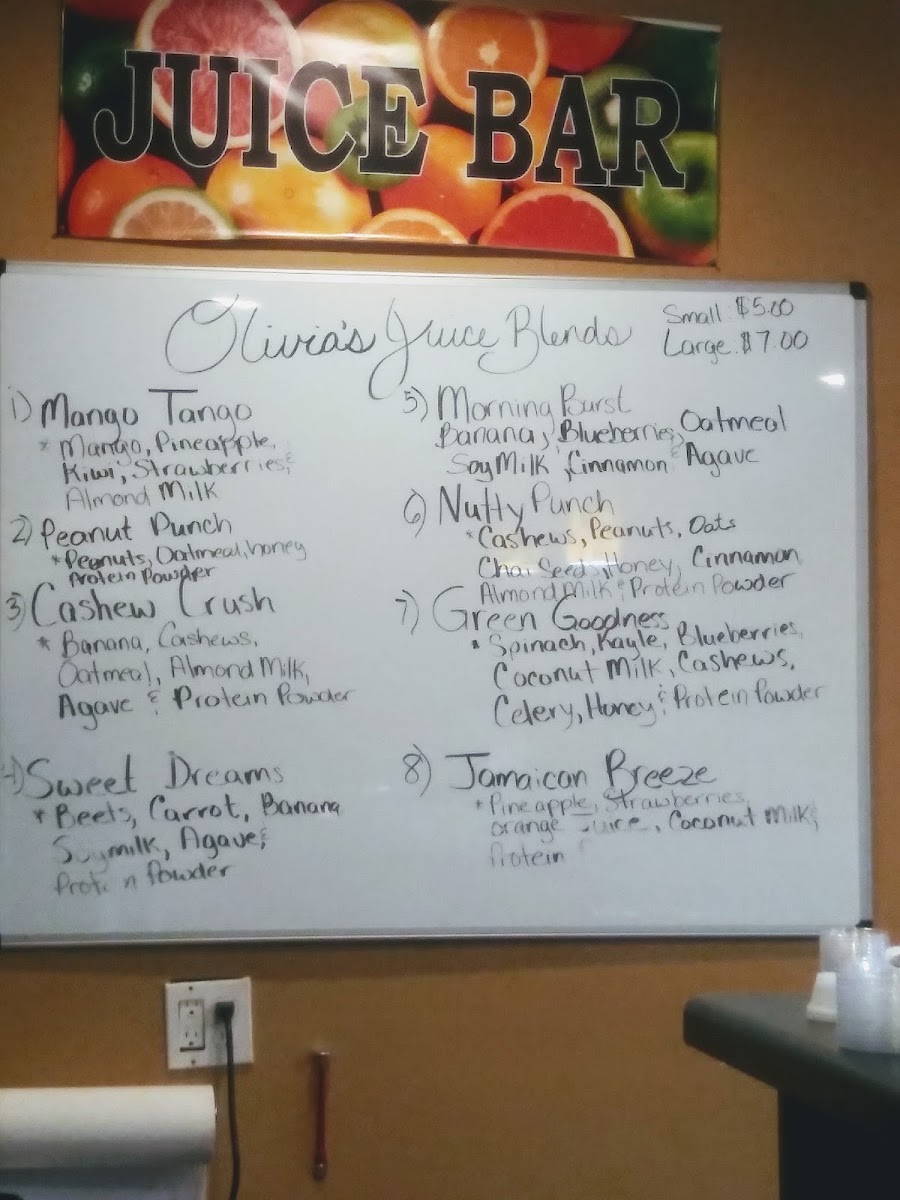 JUICE BAR
Olivia's Juice Blends
Small: $5.00
Large: $7.00
1) Mango Tango
* Mango, Pineapple,
Kiwi, Strawberries &
Almond Milk
2) Peanut Punch
* Peanuts, Oatmeal, honey
Protein Powder
3) Cashew Crush
* Banana, Cashews,
Oatmeal, Almond Milk,
Agave & Protein Powder
4) Sweet Dreams
* Beets, Carrot, Banana
Soymilk, Agave &
Protein Powder
5) Morning Burst
Banana, Blueberries, Oatmeal
Soy Milk, Cinnamon & Agave
6) Nutty Punch
* Cashews, Peanuts, Oats
Chai Seeds, Honey, Cinnamon
Almond Milk & Protein Powder
7) Green Goodness
* Spinach, Kayle, Blueberries,
Coconut Milk, Cashews,
Celery, Honey & Protein Powder
8) Jamaican Breeze
* Pineapple, Strawberries,
orange Juice, Coconut Milk &
Protein